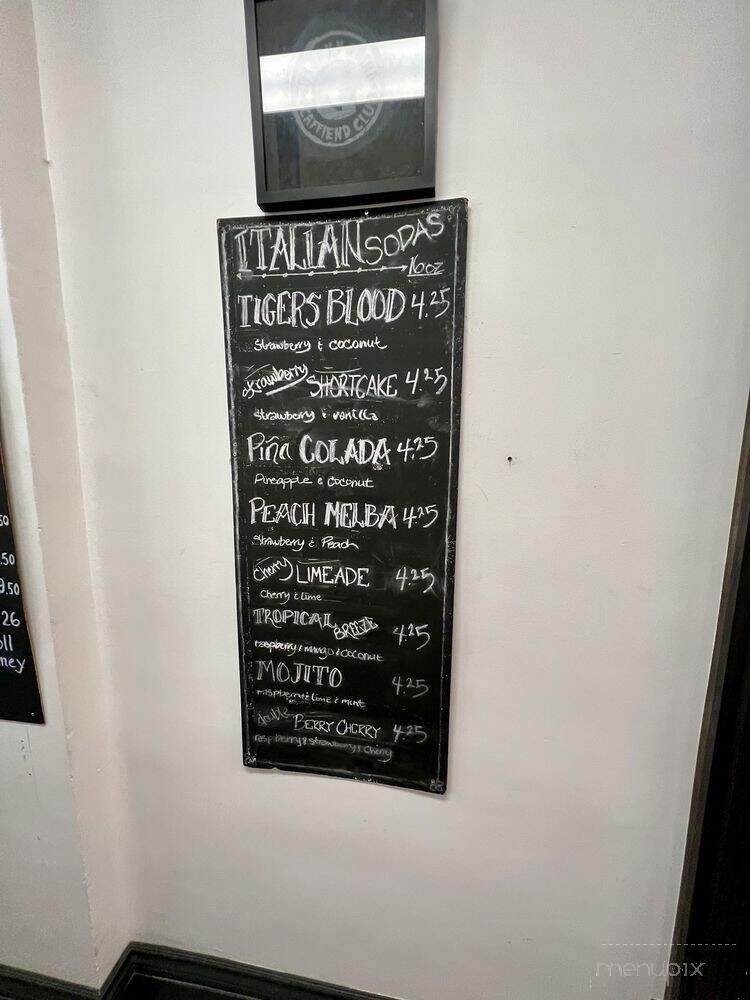 CAFFIEND CLUB
ITALIAN SODAS
16oz
TIGERS BLOOD 4.25
Strawberry & coconut
strawberry SHORTCAKE 4.25
strawberry & vanilla
Piña COLADA 4.25
Pineapple & coconut
PEACH MELBA 4.25
Strawberry & Peach
cherry LIMEADE 4.25
Cherry & lime
TROPICAL BREEZE 4.25
raspberry & mango & coconut
MOJITO 4.25
raspberry & lime & mint
double BERRY CHERRY 4.25
raspberry & strawberry & cherry
.50
9.50
26
menupix